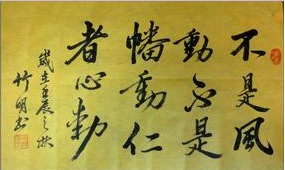 不是風
動不是
幡動仁
者心動
歲在壬辰之秋
竹明書